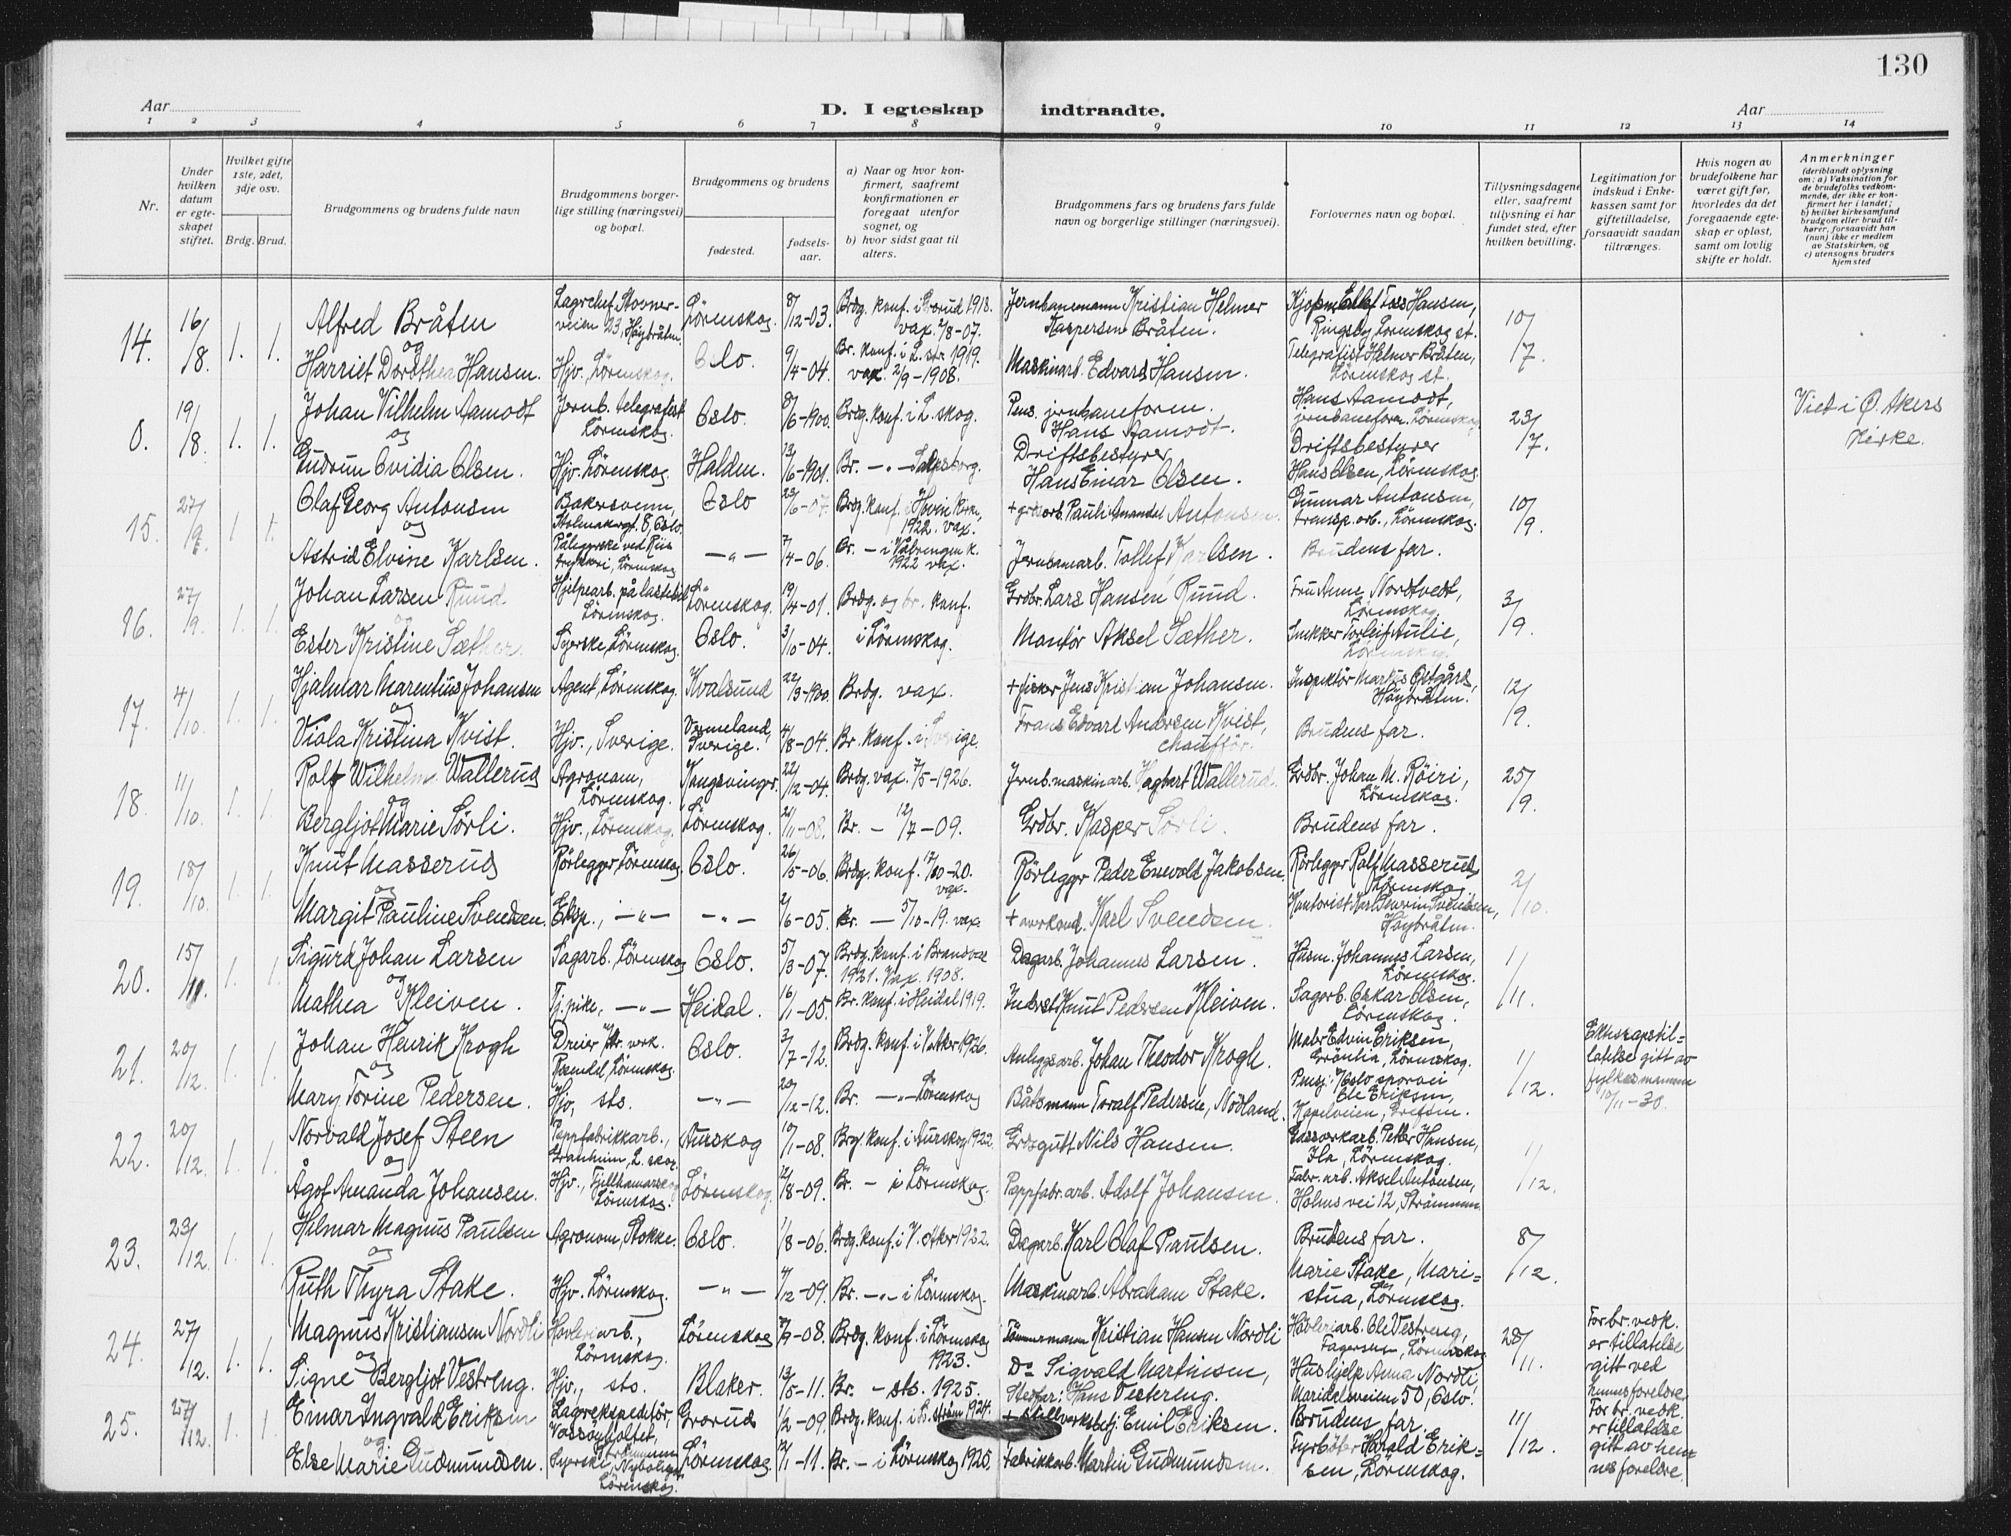 130
Aar
D. I egteskap indtraadte.
Aar
1 2 3 4 5 6 7 8 9 10 11 12 13 14
Nr.
Under hvilken datum er egteskapet stiftet.
Hvilket gifte 1ste, 2det, 3dje osv.
Brdg. Brud.
Brudgommens og brudens fulde navn
Brudgommens borgerlige stilling (næringsvei) og bopæl.
Brudgommens og brudens
fødested.
fødselsaar.
a) Naar og hvor konfirmert, saafremt konfirmationen er foregaat utenfor sognet, og
b) hvor sidst gaat til alters.
Brudgommens fars og brudens fars fulde navn og borgerlige stillinger (næringsvei).
Forlovernes navn og bopæl.
Tillysningsdagene eller, saafremt tillysning ei har fundet sted, efter hvilken bevilling.
Legitimation for indskud i Enkekassen samt for giftetilladelse, forsaavidt saadan tiltrænges.
Hvis nogen av brudefolkene har været gift før, hvorledes da det foregaaende egteskap er opløst, samt om lovlig skifte er holdt.
Anmerkninger
(deriblandt oplysning om: a) Vaksination for de brudefolks vedkommende, der ikke er konfirmert her i landet; b) hvilket kirkesamfund brudgom eller brud tilhører, forsaavidt han (nun) ikke er medlem av Statskirken, og c) utensogns bruders hjemsted
14. 16/8. 1. 1. Alfred Bråten Lagerchef, Stovnerveien 23, Høybråten. Lörenskog. 8/12-03. Brdg. konf. i Grorud 1918. vax. 7/8-07. Jernbanemann Kristian Helmer Kaspersen Bråten. Hansen, Ringsby, Lörenskog st. 10/7.
og
Harriet Dorothea Hansen. Hjv. Lörenskog. Oslo. 9/4-04. Br. konf. i L. str. 1919. vax 2/9-1908. Maskinarb. Edvard Hansen. Telegrafist Helmer Bråten, Lörenskog st.
0. 19/8. 1. 1. Johan Vilhelm Aamodt Jernb. telegrafist Lörenskog. Oslo. 8/6-1900. Brdg. konf. i L. skog. Pens. jernbaneform. Hans Aamodt. Hans Aamodt, jernbaneform. Lörenskog 23/7. Viet i Ø. Akers Kirke.
og
Gudrun Ovidia Olsen. Hjv. Lörenskog. Halden. 13/6-1901. Br. -"- Sarpsborg. Driftsbestyrer, Hans Einar Olsen. Driftsbestyrer Hans Olsen, Lörenskog.
15. 27/9. 1. 1. Olaf Georg Antonsen Bakersvenn, 8, Oslo. Oslo 23/6-07. Brdg. konf. i Hovin kirke, 1922. vax. + arb. Pauli Amandel Antonsen. Gunnar Antonsen, transp. arb., Lörenskog. 10/9.
og
Astrid Elvine Karlsen. Påleggerske ved Riis trykkeri, Lörenskog -"- 7/4-06. Br. - i Vålerengen k. 1922 vax. Jernbanearb. Tollef Karlsen. Brudens far.
16. 27/9. 1. 1. Johan Larsen Ruud Hjelpearb. på lastebil Lörenskog. Lörenskog. 19/4-01. Brdg. og br. konf. i Lörenskog. Grdbr. Lars Hansen Ruud. Fru Anna Nordtvedt, Lörenskog. 3/9.
og
Ester Kristine Sæther. Syerske, Lörenskog. Oslo. 3/10-04. Montör Aksel Sæther. Snekker Torleif Aulie, Lörenskog.
17. 4/10. 1. 1. Hjalmar Marentius Johansen Agent, Lörenskog. Kvalsund 22/3-1900. Brdg. vax. + fisker Jens Kristian Johansen. Inspektör Markus Høybråten. 12/9.
og
Viola Kristina Kvist. Hjv., Sverige. Vermeland, Sverige. 4/8-04. Br. konf. i Sverige. Frans Edvard Andersen Kvist, chauffør. Brudens far.
18. 11/10. 1. 1. Rolf Wilhelm Wallerud Agronom, Lörenskog. Kongsvinger. 22/12-04. Brdg. vax. 7/5-1926. Jernb. maskinarb. Hagbart Wallerud. Grdbr. Johan M. Röiri, Lörenskog. 25/9.
og
Bergljot Marie Sörli. Hjv., Lörenskog. Lörenskog. 21/11-08. Br. - 12/7-09. Grdbr. Kasper Sörli. Brudens far.
19. 18/10. 1. 1. Knut Masserud Rörlegger Lörenskog Oslo. 26/5-06. Brdg. konf. 17/10-20. vax. Rörlegger Peder Enevold Jakobsen. Rörlegger Rolf Masserud, Lörenskog. 2/10.
og
Margit Pauline Svendsen. Eksp., -"- -"- 2/6-05. Br. - 5/10-19. vax + Karl Svendsen. Kontorist Karl Svendsen, Høybråten.
20. 15/11. 1. 1. Sigurd Johan Larsen Sagarb. Lörenskog Oslo. 5/3-07. Brdg. konf. i Brandval 1921. Vax. 1908. Dagarb. Johannes Larsen. Husm. Johannes Larsen, Lörenskog. 1/11.
og
Mathea Kleiven. Tj. pike, -"- Heidal. 16/1-05. Br. konf. i Heidal 1919. Inderst Knut Pedersen Kleiven. Sagarb. Oskar Olsen, Lörenskog.
21. 20/12. 1. 1. Johan Henrik Krogh Dreier verk. Lörenskog Oslo. 3/7-12. Brdg. konf. i V. Aker 1926. Anleggsarb. Johan Theodor Krogh. Maler Edvin Eriksen, Grönlia, Lörenskog. 1/12. Ekteskapstillatelse gitt av fylkesmannen 10/11-30.
og
Mary Torine Pedersen. Hjv, sts. -"- 20/12-12. Br. -"- Lörenskog Båtsmann Toralf Pedersen, Nodland. Pensj. v/Oslo sporvei Ole Eriksen, Kapelveien, Grefsen.
22. 20/12. 1. 1. Norvald Josef Steen Pappfabrikkarb., Granheim, L. skog. Aurskog 10/1-08. Brdg. konf. i Aurskog 1922. Nils Hansen. Gassverkarb. Petter Hansen, Ila, Lörenskog. 1/12.
og
Ågot Amanda Johansen. Hjv., Fjellhamarskog Lörenskog. Lörenskog. 12/8-09. Br. - i Lörenskog. Pappfabr. arb. Adolf Johansen. Fabr. arb. Aksel Antonsen, Holms vei 12, Strömmen.
23. 23/12. 1. 1. Helmar Magnus Paulsen Agronom, Stokke. Oslo. 1/8-06. Brdg. konf. i V. Aker 1922. Dagarb. Karl Olaf Paulsen. Brudens far. 8/12.
og
Ruth Thyra Stake. Hjv. Lörenskog. -"- 4/12-09. Br. -"- i Lörenskog. Maskinarb. Abraham Stake. Marie Stake, Maristua, Lörenskog.
24. 27/12. 1. 1. Magnus Kristiansen Nordli Hövleriarb., Lörenskog. Lörenskog 7/9-08. Brdg. konf. i Lörenskog 1923. Tömmermann Kristian Hansen Nordli Hövleriarb. Ole Vestreng, Lörenskog 28/11. For br. vedk. er tillatelse gitt ved hennes foreldre
og
Signe Bergljot Vestreng. Hjv., sts. Blaker. 13/5-11. Br. - sts. 1925. Do Sigvald Martinsen, Stefar: Hans Vestereng. Hushjelp Anna Nordli Maridalsveien 50, Oslo.
25. 27/12. 1. 1. Einar Ingvald Eriksen Lagerekspeditör, Grorud 1/2-09. Brdg. konf. i L. ström 1924. + Emil Eriksen. Brudens far. 11/12. For br. vedk. er tillatelse gitt av hennes foreldre.
og
Else Marie Gudmundsen. Syerske, Nyboliger, Lörenskog. Lörenskog 12/1-11. Br. - i Lörenskog 1925. Fabrikkarb. Martin Gudmundsen. Fyrböter Harald Eriksen, Lörenskog.